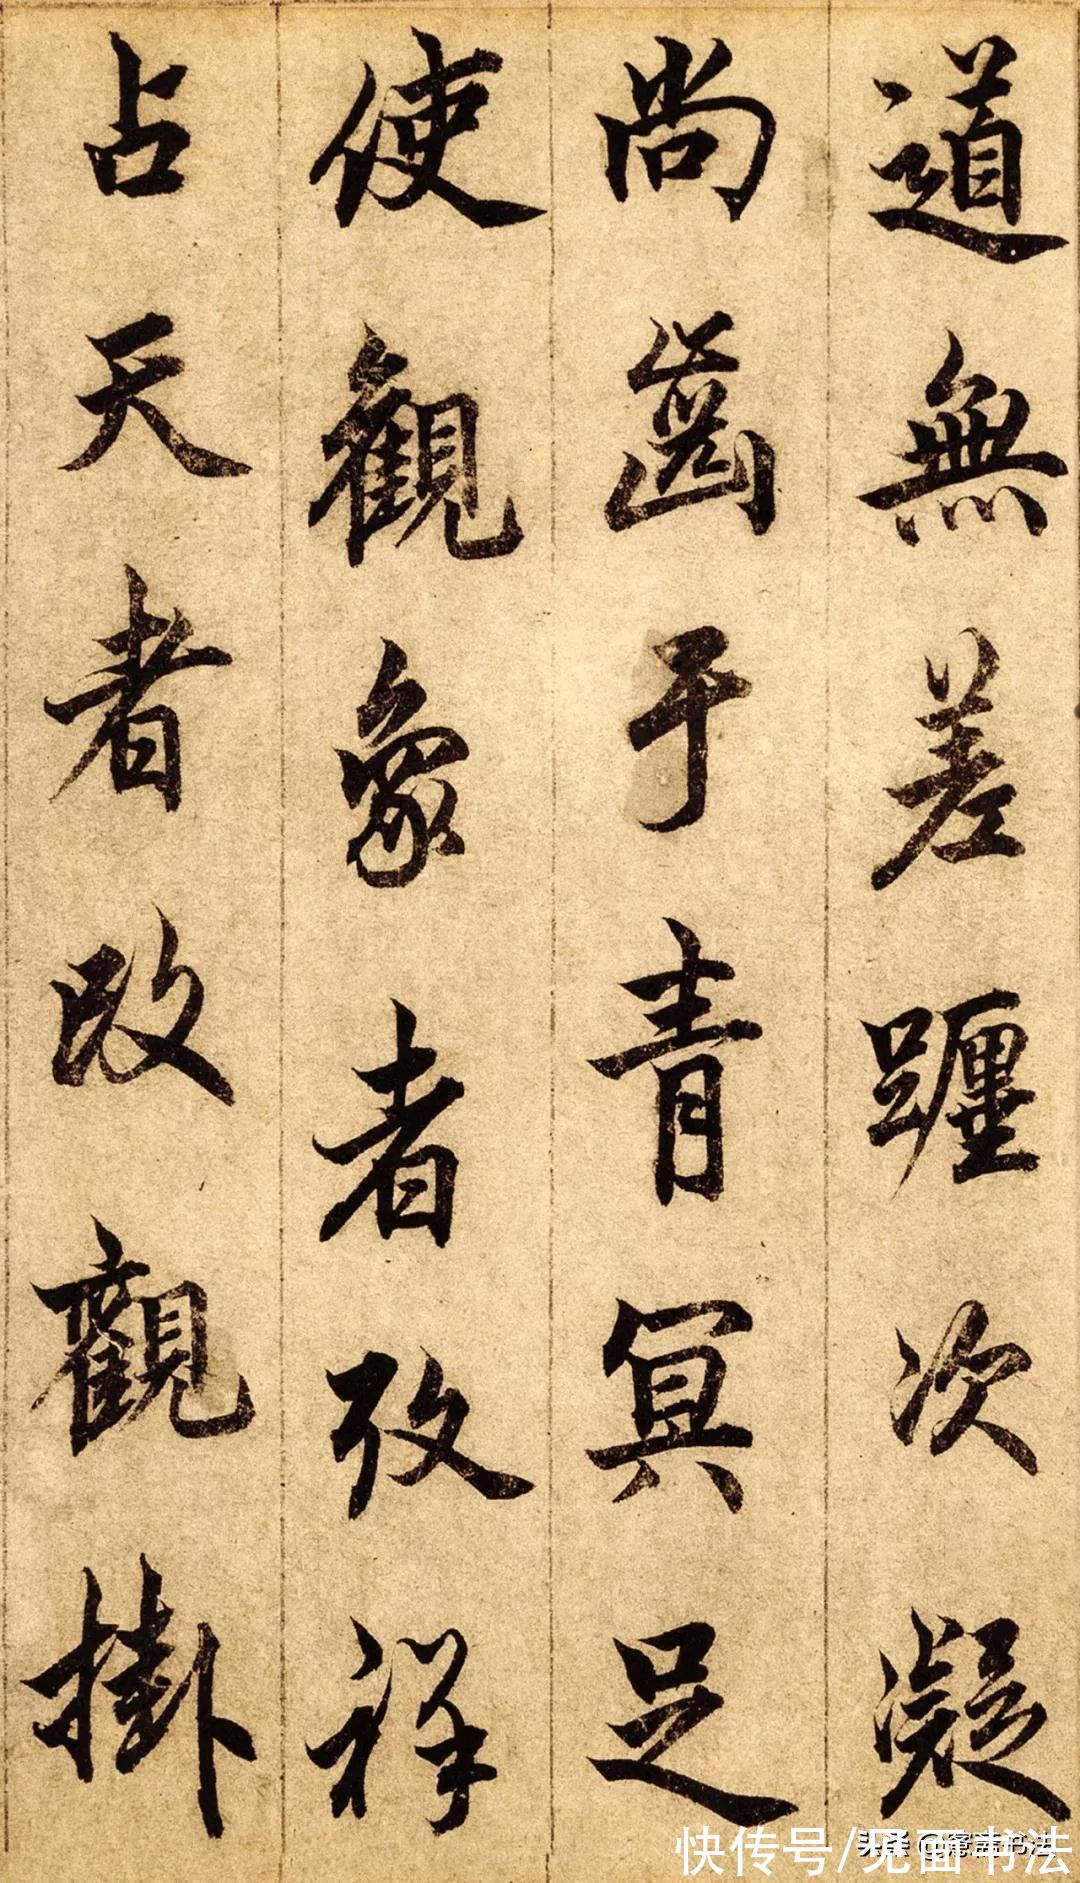 道無差躔次凝
尚齒于青冥足
使觀象者攷祥
占天者改觀掛
快传号/见面书法